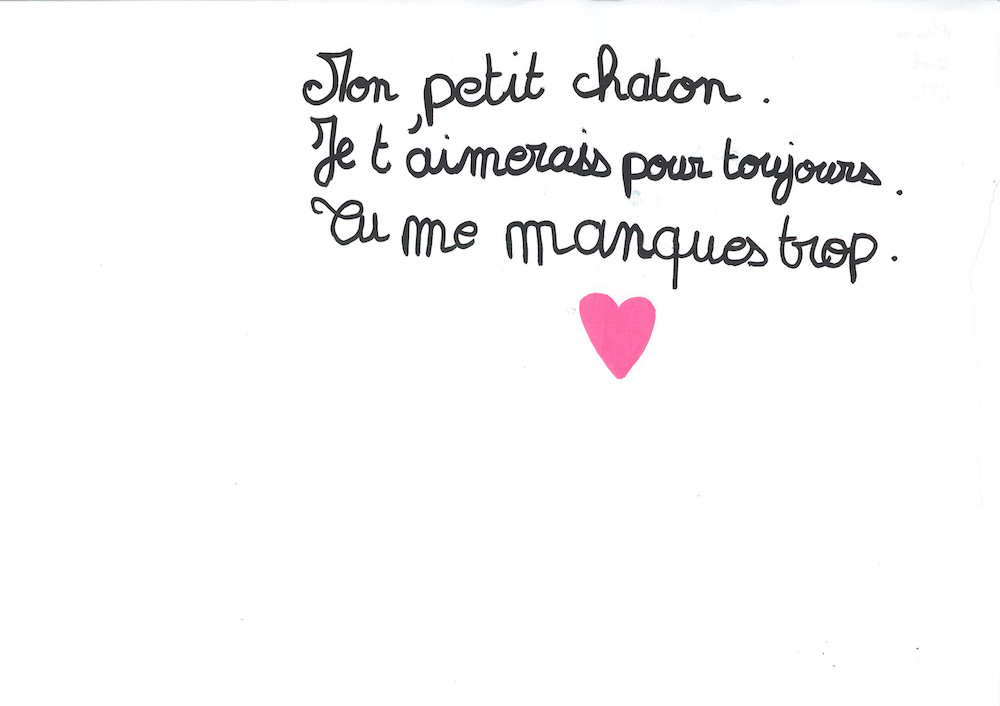 Mon petit chaton.
Je t'aimerais pour toujours.
Tu me manques trop.